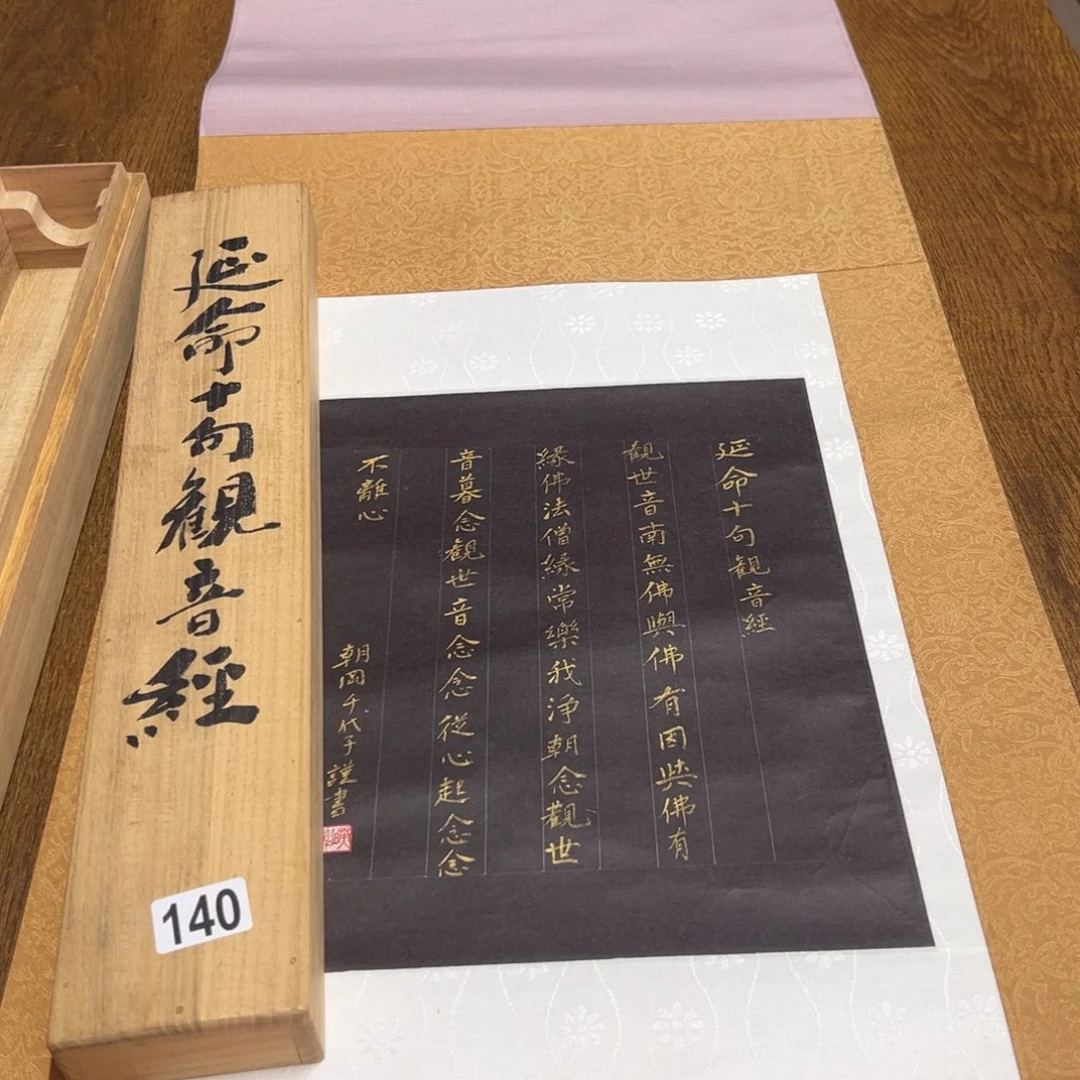 延命十句観音經
140
延命十句観音經
観世音南無佛與佛有因與佛有
縁佛法僧縁常樂我浄朝念觀世
音暮念観世音念念從心起念念
不離心
朝岡千代子謹書